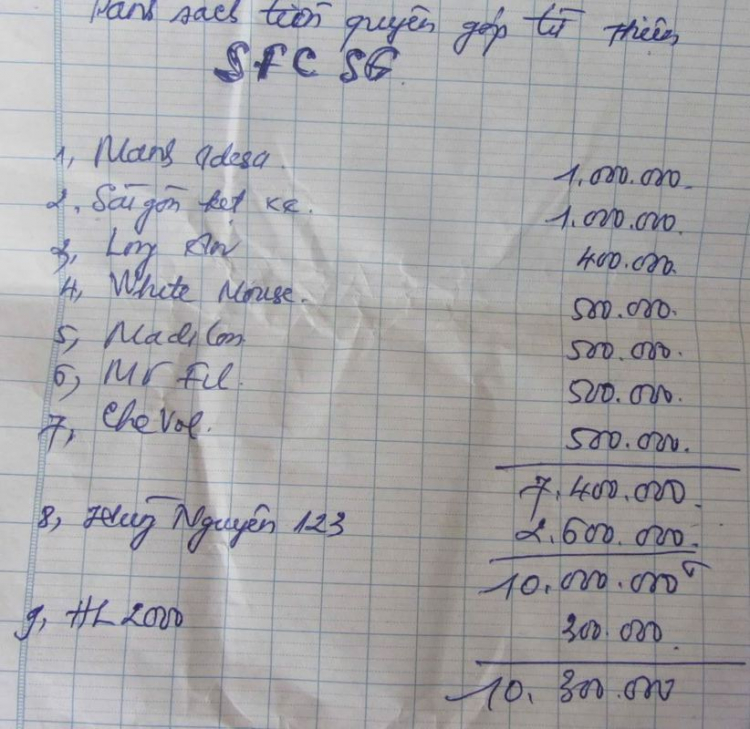 Danh sách tiền quyên góp từ thiện
SFC SG
1, Manh adesa 1.000.000
2. Sài gòn kẹt xe. 1.000.000.
3, Long An 400.000.
4, White Mouse. 500.000.
5, Madilon 500.000.
6, Mr Ful. 500.000.
7, CheVol. 500.000.
7.400.000.
8, Hưng Nguyên 123 2.600.000.
10.000.000đ
9, HL2000 300.000.
10.300.000